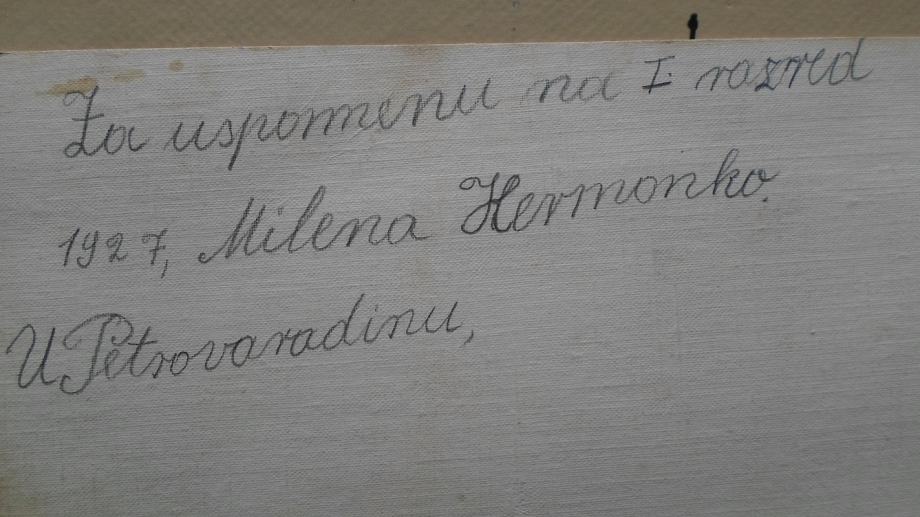 Za uspomenu na I. razred
1927, Milena Hermonko.
U Petrovaradinu,